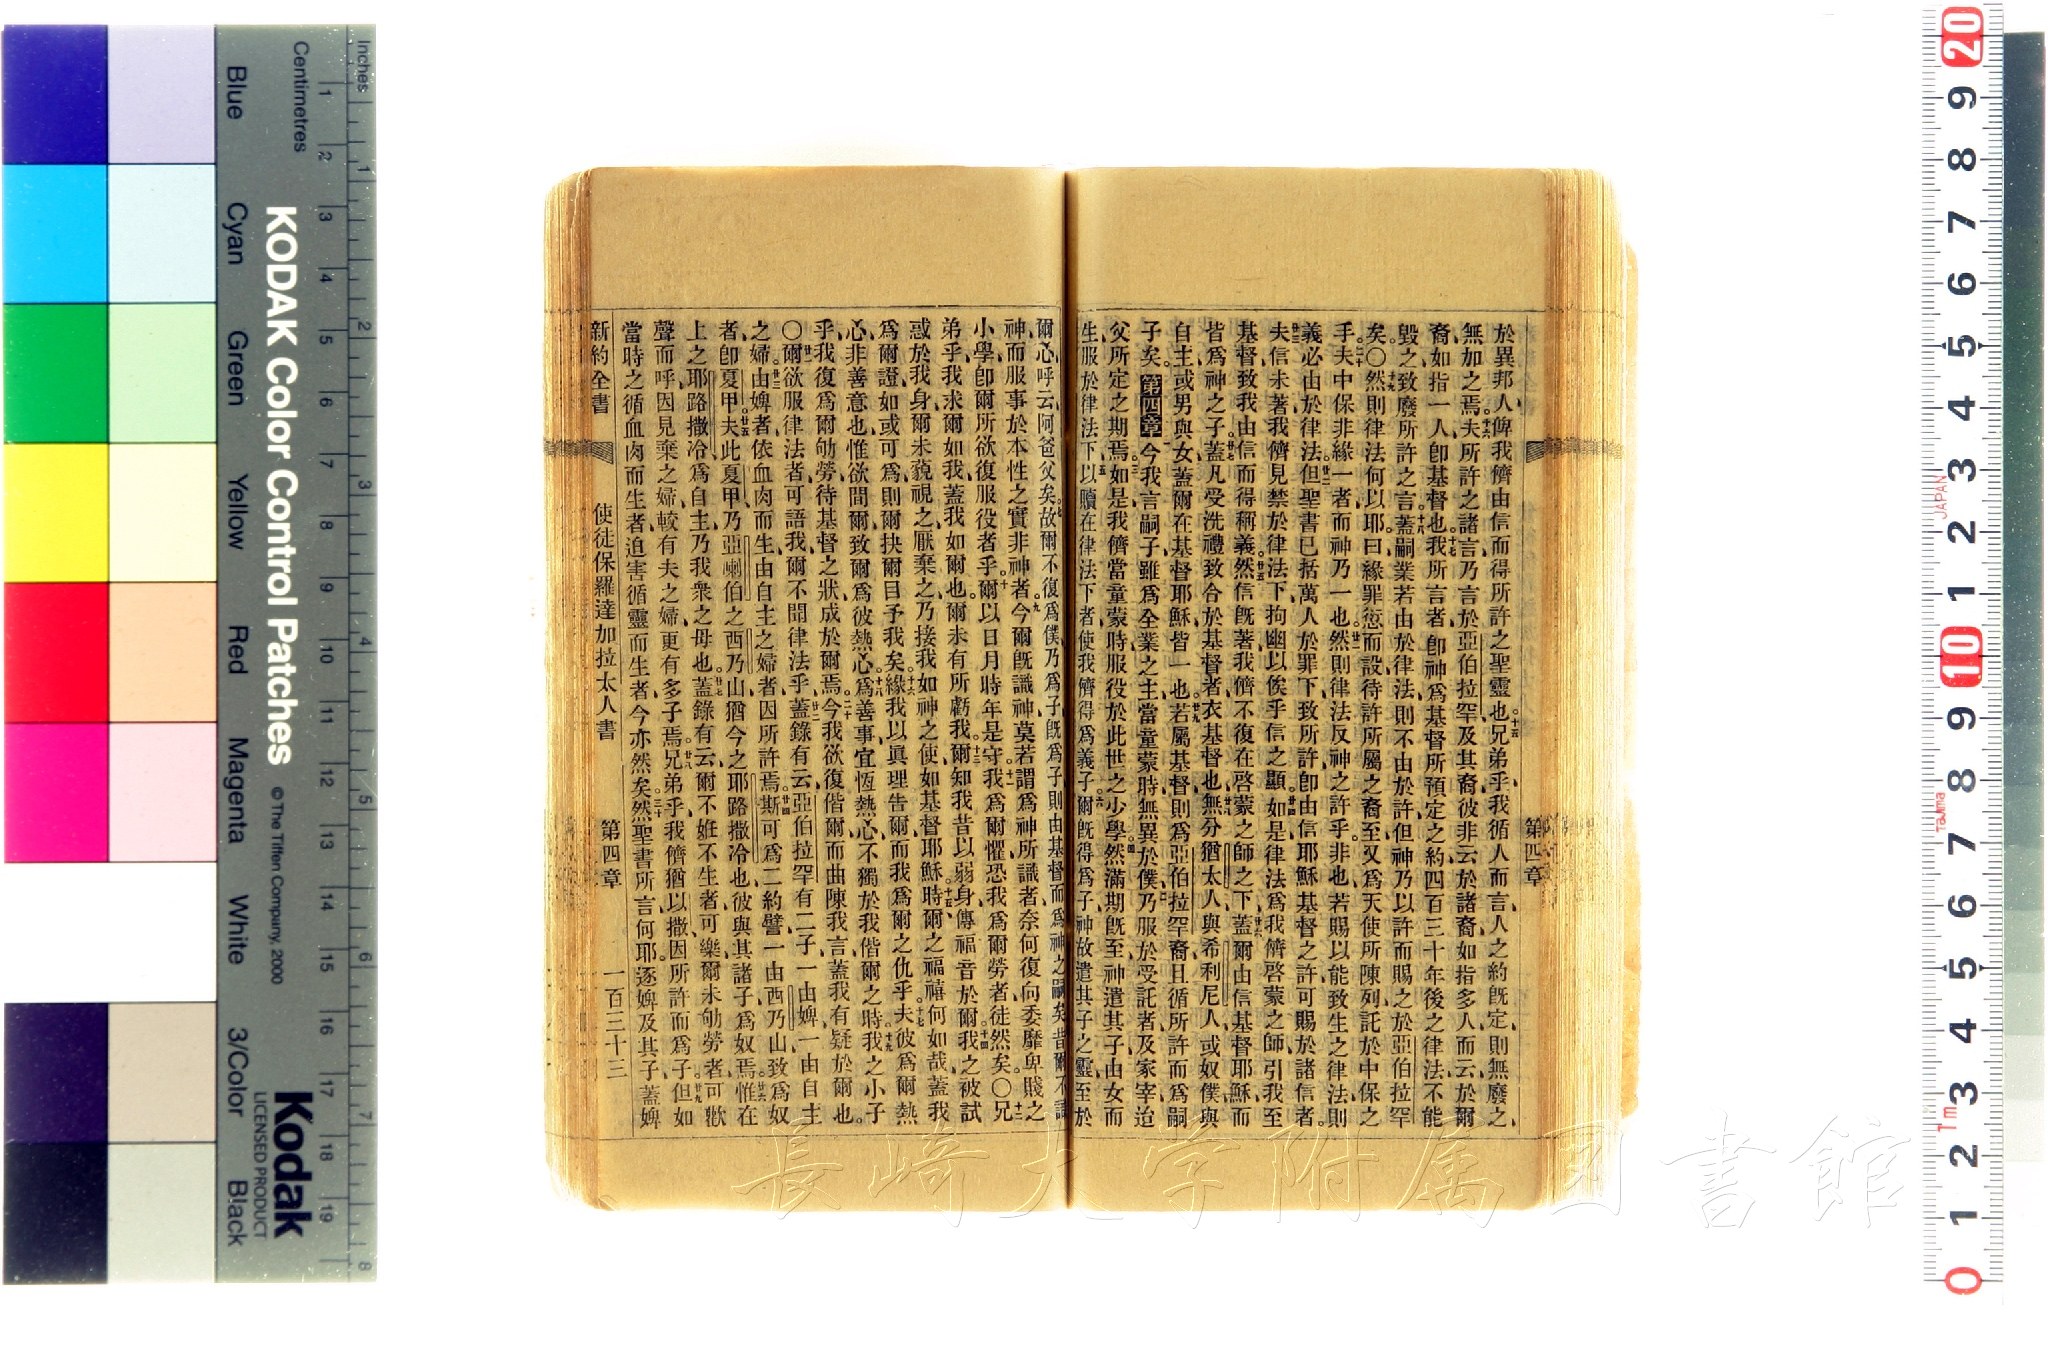 於異邦人俾我儕由信而得所許之聖靈也兄弟乎我循人而言人之約旣定則無廢之
無加之焉夫所許之諸言乃言於亞伯拉罕及其裔彼非云於諸裔如指多人而云於爾
裔如指一人卽基督也我所言者卽神爲基督所預定之約四百三十年後之律法不能
毀之致廢所許之言蓋嗣業若由於律法則不由於許但神乃以許而賜之於亞伯拉罕
矣〇然則律法何以耶曰緣罪愆而設待許所屬之裔至又爲天使所陳列託於中保之
手夫中保非緣一者而神乃一也然則律法反神之許乎非也若賜以能致生之律法則
義必由於律法但聖書已括萬人於罪下致所許卽由信耶穌基督之許可賜於諸信者
夫信未著我儕見禁於律法下拘幽以俟乎信之顯如是律法爲我儕啓蒙之師引我至
基督致我由信而得稱義然信旣著我儕不復在啓蒙之師之下蓋爾由信基督耶穌而
皆爲神之子蓋凡受洗禮致合於基督者衣基督也無分猶太人與希利尼人或奴僕與
自主或男與女蓋爾在基督耶穌皆一也若屬基督則爲亞伯拉罕裔且循所許而爲嗣
子矣第四章今我言嗣子雖爲全業之主當童蒙時無異於僕乃服於受託者及家宰迨
父所定之期焉如是我儕當童蒙時服役於此世之少學然滿期旣至神遣其子由女而
生服於律法下以贖在律法下者使我儕得爲義子爾旣得爲子神故遣其子之靈至於
第四章
爾心呼云阿爸父矣故爾不復爲僕乃爲子旣爲子則由基督而爲神之嗣矣昔爾不識
神而服事於本性之實非神者今爾旣識神莫若謂爲神所識者奈何復向委靡卑賤之
小學卽爾所欲復服役者乎爾以日月時年是守我爲爾懼恐我爲爾勞者徒然矣〇兄
弟乎我求爾如我蓋我如爾也爾未有所虧我爾知我昔以弱身傳福音於爾我之被試
惑於我身爾未藐視之厭棄之乃接我如神之使如基督耶穌時爾之福禧何如哉蓋我
爲爾證如或可爲則爾抉爾目予我矣緣我以眞理告爾而我爲爾之仇乎夫彼爲爾熱
心非善意也惟欲間爾致爾爲彼熱心爲善事宜恆熱心不獨於我偕爾之時我之小子
乎我復爲爾劬勞待基督之狀成於爾焉今我欲復偕爾而曲陳我言蓋我有疑於爾也
〇爾欲服律法者可語我爾不聞律法乎蓋錄有云亞伯拉罕有二子一由婢一由自主
之婦由婢者依血肉而生由自主之婦者因所許焉斯可爲二約譬一由西乃山致爲奴
者卽夏甲夫此夏甲乃亞喇伯之西乃山猶今之耶路撒冷也彼與其諸子爲奴焉惟在
上之耶路撒冷爲自主乃我衆之母也蓋錄有云爾不姙不生者可樂爾未劬勞者可歡
聲而呼因見棄之婦較有夫之婦更有多子焉兄弟乎我儕猶以撒因所許而爲子但如
當時之循血肉而生者迫害循靈而生者今亦然矣然聖書所言何耶逐婢及其子蓋婢
新約全書 使徒保羅達加拉太人書 第四章 一百三十三
KODAK Color Control Patches © The Tiffen Company, 2000
Kodak
LICENSED PRODUCT
Inches
Centimetres
Blue Cyan Green Yellow Red Magenta White 3/Color Black
1 2 3 4 5 6 7 8 9 10 11 12 13 14 15 16 17 18 19
1 2 3 4 5 6 7 8
20 9 8 7 6 5 4 3 2 1 10 9 8 7 6 5 4 3 2 1 0
JAPAN
Tajima
Tm
長崎大学附属図書館